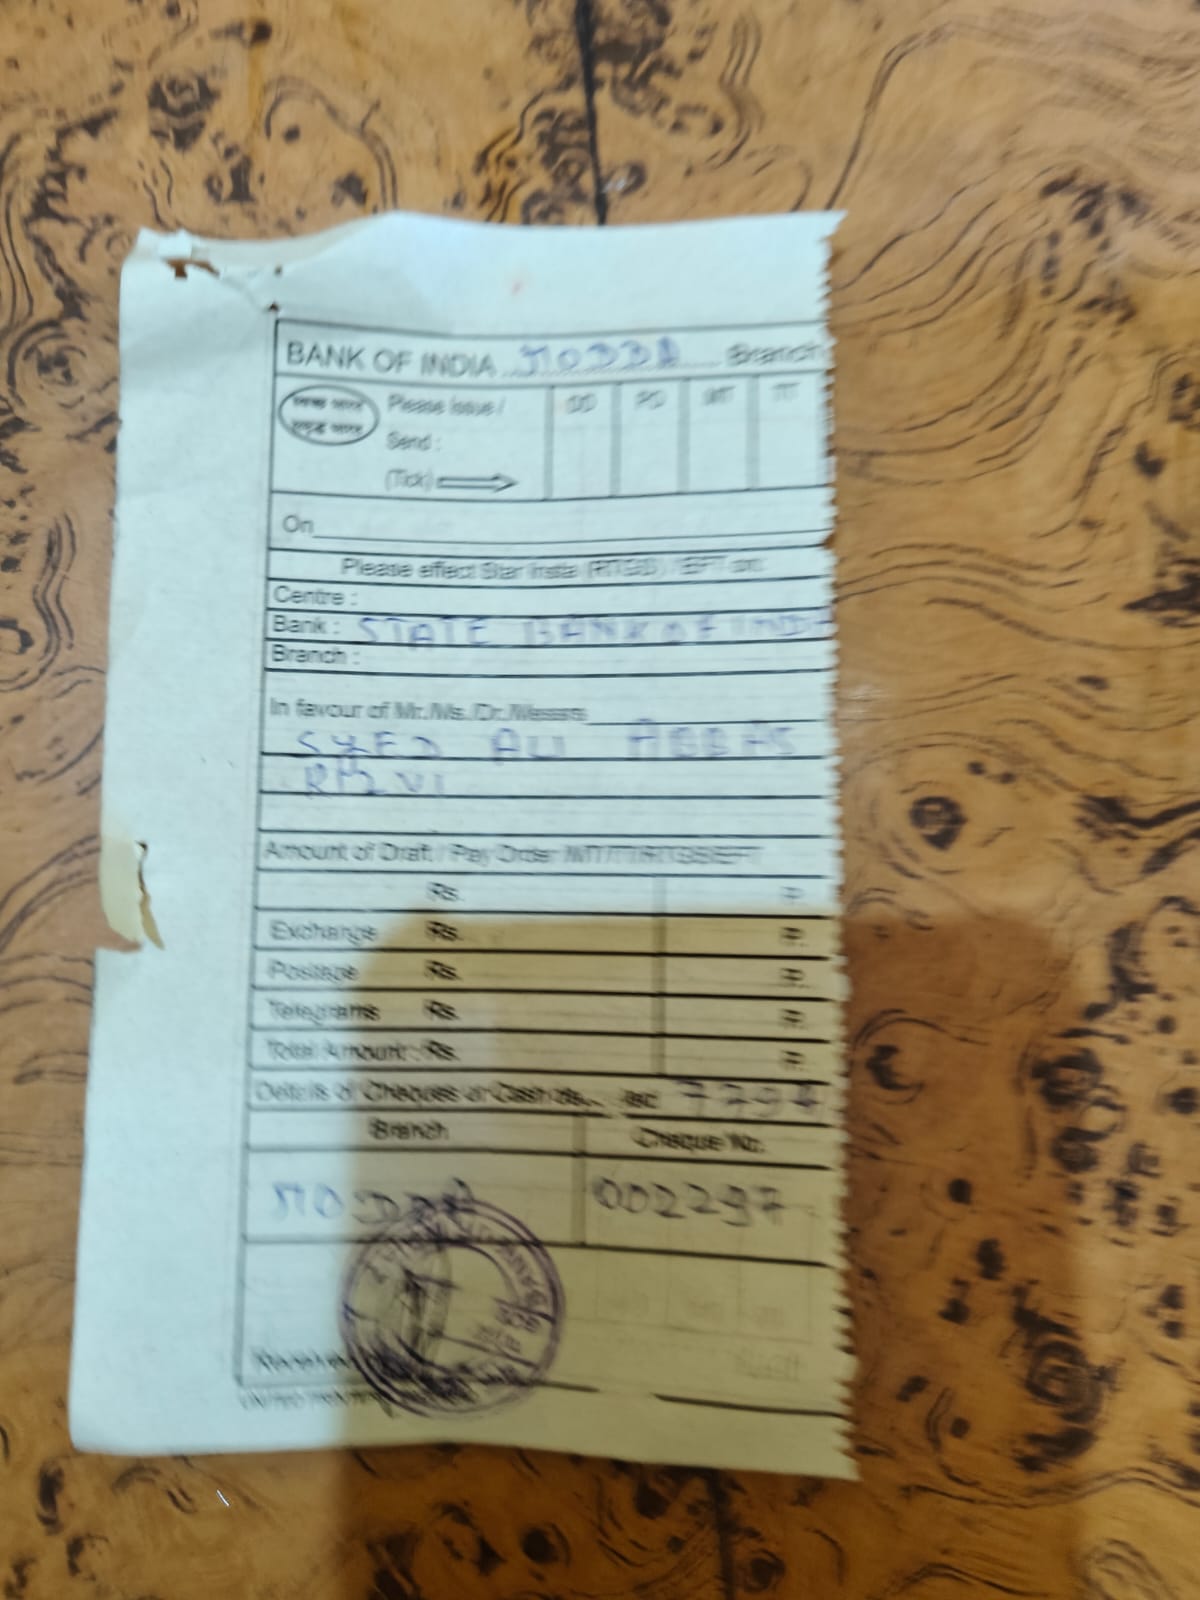 BANK OF INDIA MODDA Branch
स्वच्छ भारत
समृद्ध भारत
Please Issue /
Send :
(Tick)
DD PO MT TT
On
Please effect Star Insta (RTGS) / EFT on:
Centre :
Bank : STATE BANK OF INDIA
Branch :
In favour of Mr./Ms./Dr./Messrs
SYED ALI ABBAS
RIZVI
Amount of Draft / Pay Order /MT/TT/RTGS/EFT
Rs. P.
Exchange Rs. P.
Postage Rs. P.
Telegrams Rs. P.
Total Amount : Rs. P.
Details of Cheques or Cash 7794
Branch Cheque No.
MODDA 002297